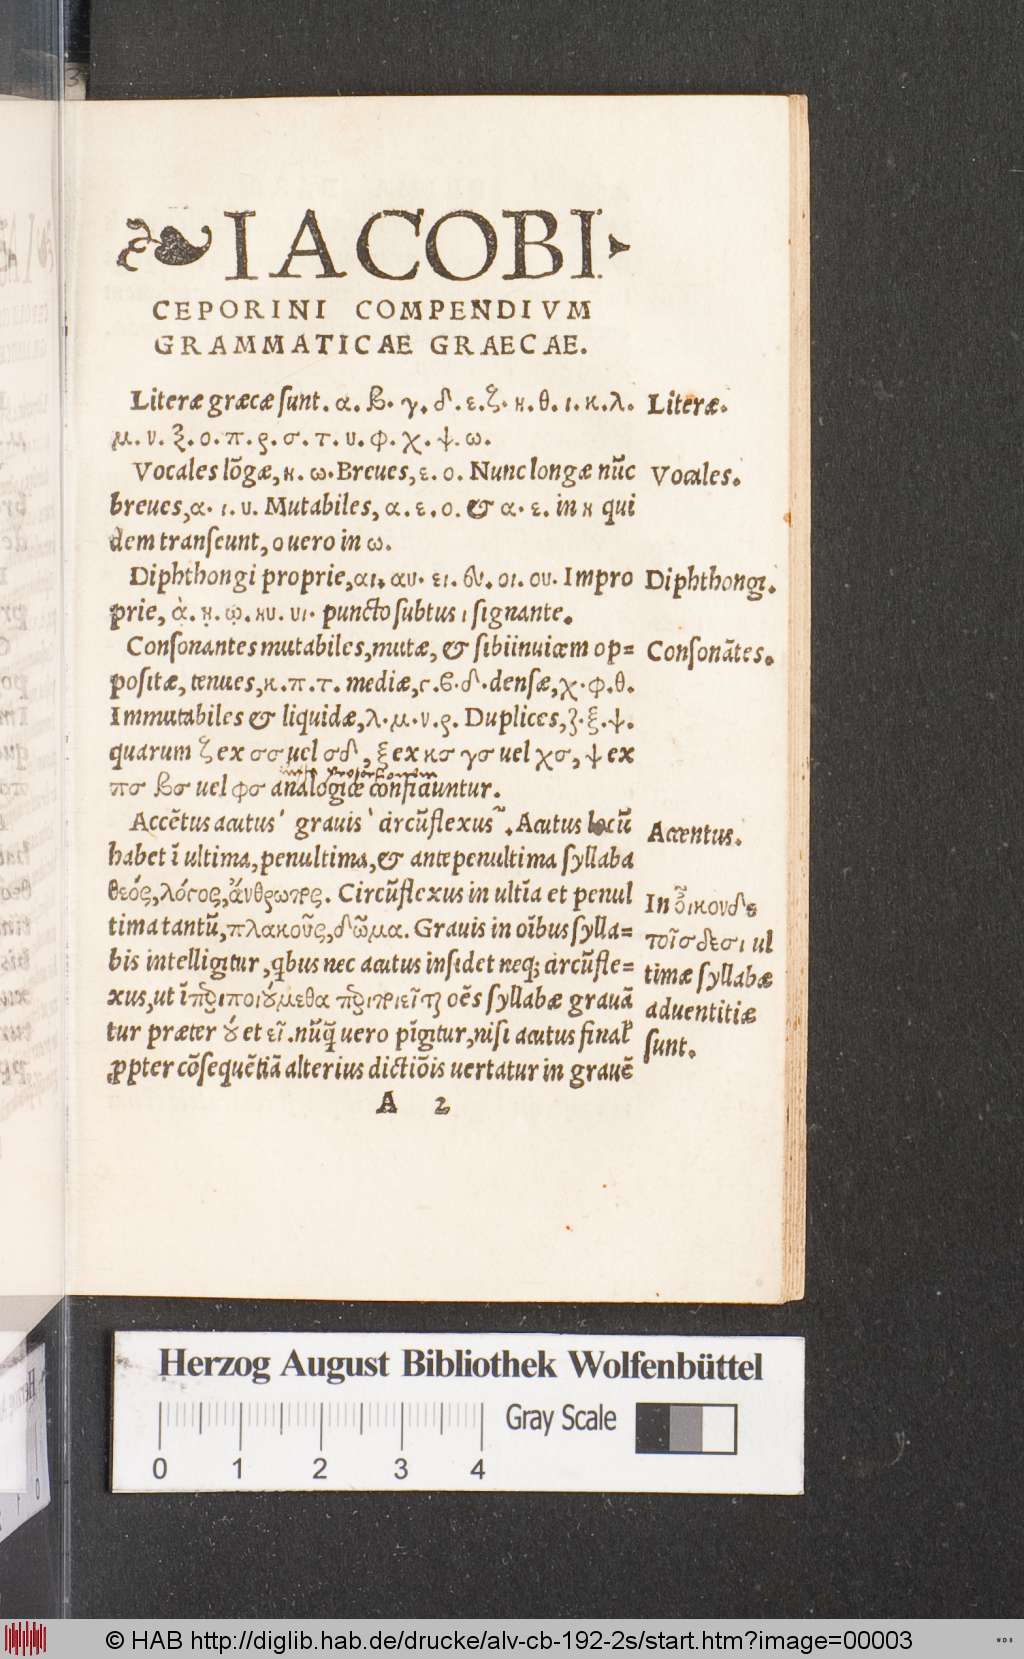 ❧ IACOBI
CEPORINI COMPENDIVM
GRAMMATICAE GRAECAE.
Literæ græcæ sunt. α. β. γ. δ. ε. ζ. η. θ. ι. κ. λ.
μ. ν. ξ. ο. π. ρ. σ. τ. υ. φ. χ. ψ. ω.
Literæ.
Vocales lõgæ, η. ω. Breues, ε. ο. Nunc longæ nũc
breues, α. ι. υ. Mutabiles, α. ε. ο. & α. ε. in η qui
dem transeunt, ο uero in ω.
Vocales.
Diphthongi proprie, αι. αυ. ει. ευ. οι. ου. Impro
prie, ᾳ. ῃ. ῳ. ηυ. υι. puncto subtus ι signante.
Diphthongi.
Consonantes mutabiles, mutæ, & sibiinuicem op=
positæ, tenues, κ. π. τ. mediæ, γ. β. δ. densæ, χ. φ. θ.
Immutabiles & liquidæ, λ. μ. ν. ρ. Duplices, ζ. ξ. ψ.
quarum ζ ex σσ uel σδ, ξ ex κσ γσ uel χσ, ψ ex
πσ βσ uel φσ analogicæ conficiuntur.
Consonãtes.
Accẽtus acutus ´ grauis ` circũflexus ~. Acutus locũ
habet ĩ ultima, penultima, & antepenultima syllaba
θεός, λόγος, ἄνθρωπος. Circũflexus in ultĩa et penul
tima tantũ, πλακοῦς, δῶμα. Grauis in oĩbus sylla=
bis intelligitur, qbus nec acutus insidet neq; circũfle=
xus, ut ĩ περιποιούμεθα περιποιεῖται oẽs syllabæ grauã
tur præter ού et εῖ. nũq̃ uero pĩgitur, nisi acutus final
ꝓpter cõsequẽtiã alterius dictiõis uertatur in grauẽ
Accentus.
In οἴκουδε
τοῖσδεσι ul
timæ syllabæ
aduentitiæ
sunt.
A 2
Herzog August Bibliothek Wolfenbüttel
Gray Scale
0 1 2 3 4
© HAB http://diglib.hab.de/drucke/alv-cb-192-2s/start.htm?image=00003